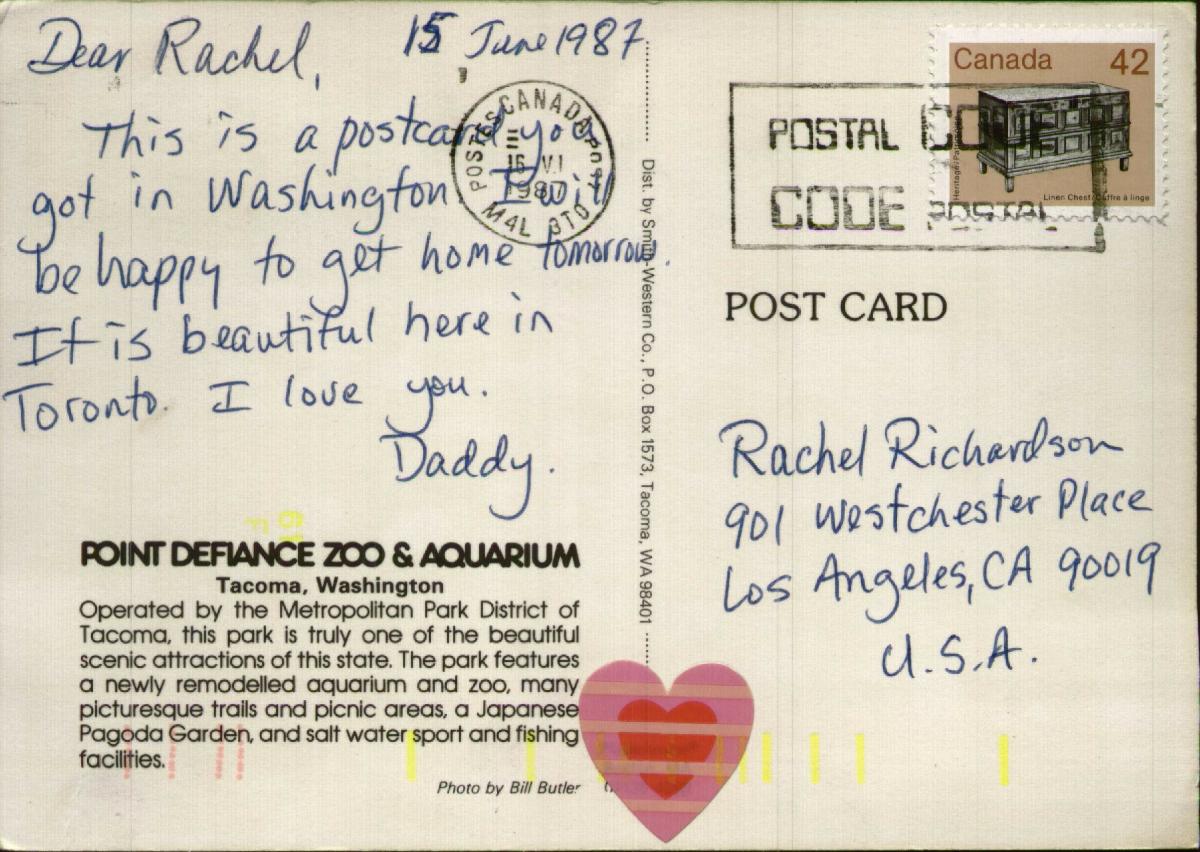 Dear Rachel, 15 June 1987
This is a postcard you
got in Washington I will
be happy to get home tomorrow.
It is beautiful here in
Toronto. I love you.
Daddy.
POINT DEFIANCE ZOO & AQUARIUM
Tacoma, Washington
Operated by the Metropolitan Park District of
Tacoma, this park is truly one of the beautiful
scenic attractions of this state. The park features
a newly remodelled aquarium and zoo, many
picturesque trails and picnic areas, a Japanese
Pagoda Garden, and salt water sport and fishing
facilities.
Photo by Bill Butler
Dist. by Smith-Western Co., P.O. Box 1573, Tacoma, WA 98401
POSTES CANADA POST
16 VI
1987
M4L 3T0
POSTAL CODE
CODE POSTAL
Canada 42
Linen Chest/Coffre à linge
POST CARD
Rachel Richardson
901 Westchester Place
Los Angeles, CA 90019
U.S.A.